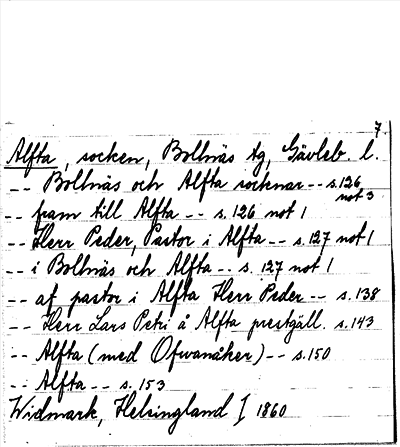 7
Alfta, socken, Bollnäs tg, Gävleb. l.
-- Bollnäs och Alfta socknar -- s.126 not 3
-- fram till Alfta -- s.126 not 1
-- Herr Peder, Pastor i Alfta -- s.127 not 1
-- i Bollnäs och Alfta -- s. 127 not 1
-- af pastor i Alfta Herr Peder -- s.138
-- Herr Lars Petri å Alfta prestgäll. s.143
-- Alfta (med Ofwanåker) -- s.150
-- Alfta -- s.153
Widmark, Helsingland I 1860